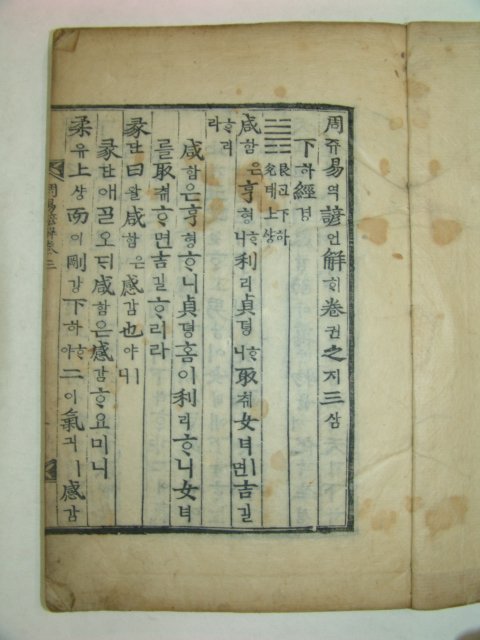 周쥬易역諺언解ᄒᆡ卷권之지三삼
下하經경
䷞艮간下하兌태上샹
咸함은亨형ᄒᆞ니利리貞뎡ᄒᆞ니取췌女녀ㅣ면吉길
ᄒᆞ리라
咸함은亨형ᄒᆞ니貞뎡홈이利리ᄒᆞ니女녀
를取췌ᄒᆞ면吉길ᄒᆞ리라
彖단曰왈咸함은感감也야ㅣ니
彖단애ᄀᆞᆯ오ᄃᆡ咸함은感감ᄒᆞ요미니
柔유上샹而이剛강下하ᄒᆞ야二이氣긔ㅣ感감
周易諺解卷三